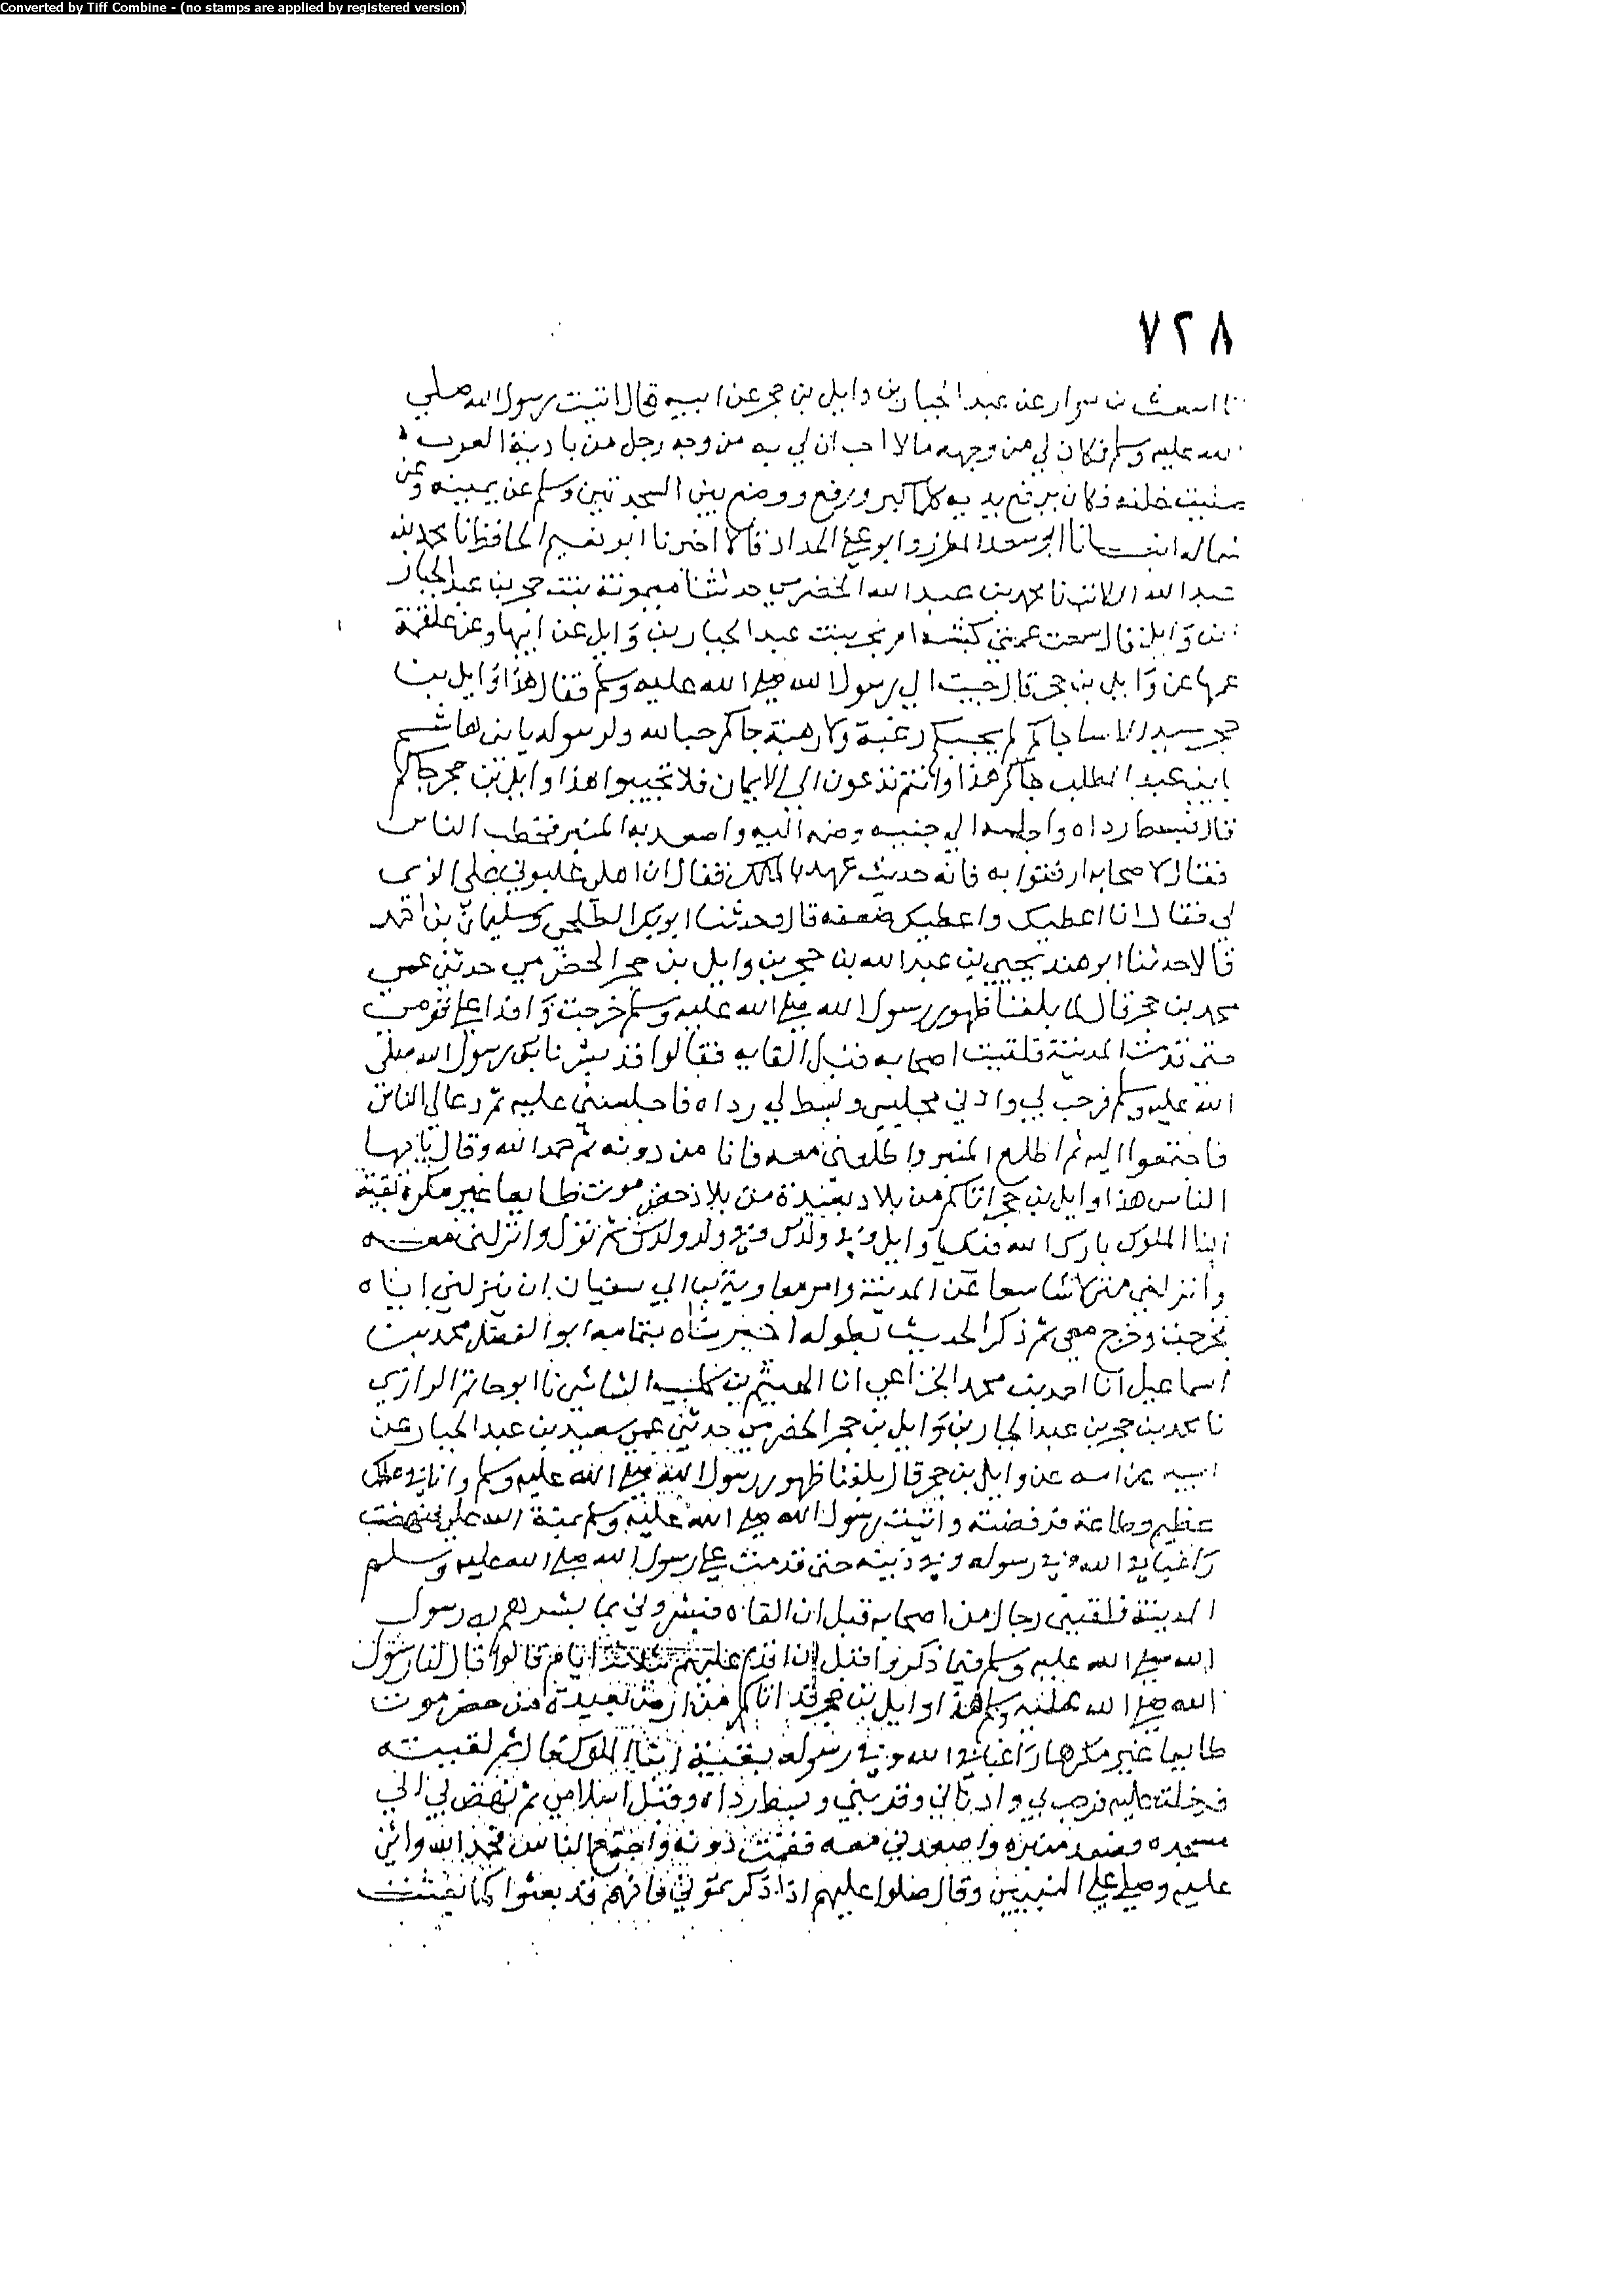 Converted by Tiff Combine - (no stamps are applied by registered version)
٧٢٨
نا اسعث بن سوار عن عبد الجبار بن وايل بن حجر عن ابيه قال اتيت رسول الله صلي
الله عليه وسلم فكان لي من وجهه مالا احب ان لي به من وجه رجل من بادية العرب
صليت خلفه فكان يرفع يديه كلما كبر ورفع ووضع بين السجدتين وسلم عن يمينه وعن
شماله انبـانا ابو سعد المطرز وابو علي الحداد قالا اخبرنا ابو نعيم الحافظ نا محمد بن
عبد الله الكاتب نا محمد بن عبد الله الحضرمي حدثتنا ميمونة بنت حجر بن عبد الجبار
بن وايل قال سمعت عمتي كبشه ام يحي بنت عبد الجبار بن وايل عن ابيها وعن علقمة
عمها عن وايل بن حجر قال جيت الي رسول الله صلى الله عليه وسلم فقال هذا وايل بن
حجر جاكم لم يجيكم رغبة ولا رهبة جاكم حبا لله ولرسوله يا بني هاشم
يا بني عبد المطلب جاكم هذا وانتم تدعون الى الايمان فلا تجيبوا هذا وايل بن حجر جاكم
قال فبسط رداه واجلسه الي جنبه وضمه اليه واصعد به المنبر فخطب الناس
فقال لاصحابه ارفقوا به فانه حديث عهد بالملك فقال ان اهلي غلبوني على الذي
لي فقال انا اعطيك واعطيك ضعفه قال وحدثنا ابو بكر الطلحي وسليمان بن احمد
قالا حدثنا ابو هند يحيي بن عبد الله بن حجر بن وايل بن حجر الحضرمي حدثني عمي
محمد بن حجر قال لما بلغنا ظهور رسول الله صلى الله عليه وسلم خرجت وافدا على قومي
حتى قدمت المدينة فلقيت اصحابه قبل القايه فقالوا قد بشرنا بك رسول الله صلى
الله عليه وسلم فرحب بي وادني مجلسي وبسط لي رداه فاجلسني عليه ثم دعا في الناس
فاجتمعوا اليه ثم اطلع المنبر واطلعني معه فانا من دونه ثم حمد الله وقال يا ايها
الناس هذا وايل بن حجر اتاكم من بلاد بعيدة من بلاد حضرموت طايعا غير مكره بقية
ابنا الملوك بارك الله فيك يا وايل وفي ولدك وفي ولد ولدك ثم نزل وانزلني معه
وانزلني منزلا شاسعا عن المدينة وامر معاوية بن ابي سفيان ان ينزلني اياه
فخرجت وخرج معي ثم ذكر الحديث بطوله اخبرناه بتمامه ابو الفضل محمد بن
اسماعيل انا احمد بن محمد الخزاعي انا الهيثم بن كليب الشاشي نا ابو حاتم الرازي
نا محمد بن حجر بن عبد الجبار بن وايل بن حجر الحضرمي حدثني عمي سعيد بن عبد الجبار عن
ابيه عن امه عن وايل بن حجر قال بلغنا ظهور رسول الله صلى الله عليه وسلم وانا في ملك
عظيم وطاعة فرفضته واتيت رسول الله صلى الله عليه وسلم
راغبا في الله وفي رسوله وفي دينه حتى قدمت على رسول الله صلى الله عليه وسلم
المدينة فلقيني رجال من اصحابه قبل ان القاه فبشروني بما بشرهم به رسول
الله صلى الله عليه وسلم فيما ذكروا قبل ان اقدم عليهم ثلاثة ايام قالوا قال لنا رسول
الله صلى الله عليه وسلم هذا وايل بن حجر قد اتاكم من ارض بعيدة من حضرموت
طايعا غير مكرها راغبا في الله وفي رسوله بقية ابنا الملوك قال ثم لقيته
فدخلت عليه فرحب بي وادناني وقربني وبسط رداه وقبل اسلامي ثم نهض بي الي
مسجده فصعد منبره واصعدني معه فقمت دونه واجتمع الناس فحمد الله واثني
عليه وصلى على النبيين وقال صلوا عليهم اذا ذكرتموني فانهم قد بعثوا كما بعثت